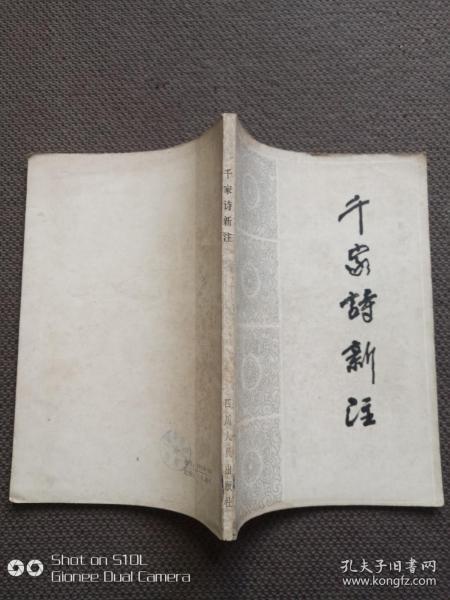 千家詩新注
千家诗新注
四川人民出版社
Shot on S10L
Gionee Dual Camera
孔夫子旧书网
www.kongfz.com